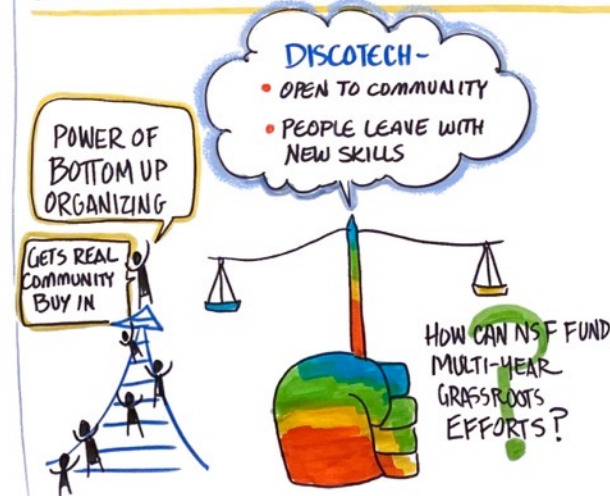 DISCOTECH-
• OPEN TO COMMUNITY
• PEOPLE LEAVE WITH
NEW SKILLS
POWER OF
BOTTOM UP
ORGANIZING
GETS REAL
COMMUNITY
BUY IN
HOW CAN NSF FUND
MULTI-YEAR
GRASSROOTS
EFFORTS?